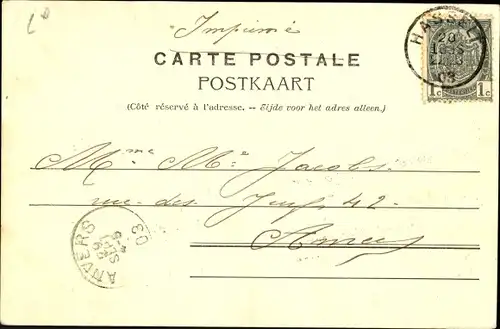 Imprimé
CARTE POSTALE
POSTKAART
(Côté réservé à l'adresse. — Zijde voor het adres alleen.)
HASSELT
20
03
1c 1c
Mme Me Jacobs
rue des 42
Anvers
ANVERS
03